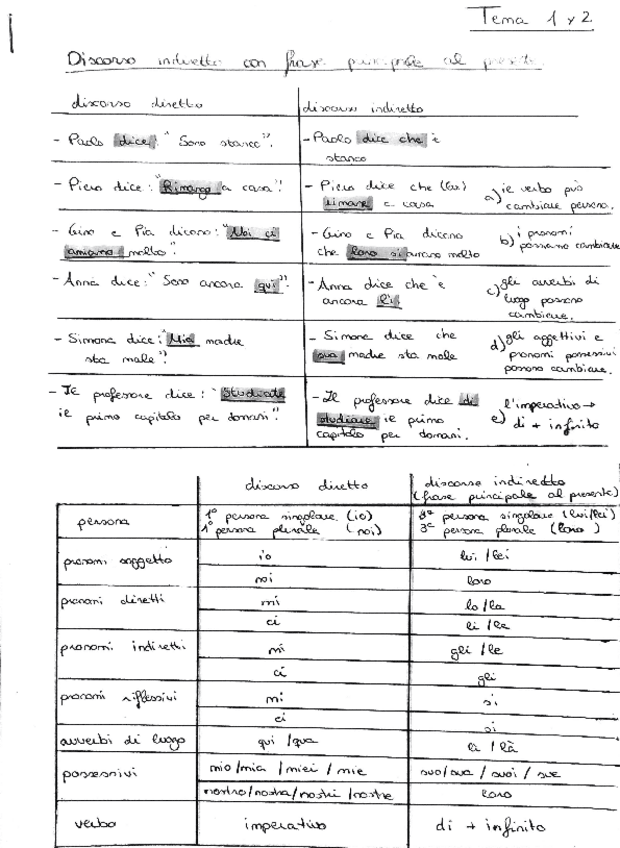 Tema 1 y 2
Discorso indiretto con frase principale al presente
discorso diretto
discorso indiretto
- Paolo dice: "Sono stanco".
- Paolo dice che è
stanco
- Piero dice: "Rimango a casa".
- Piero dice che (lui)
rimane a casa
a) il verbo può
cambiare persona.
- Gino e Pia dicono: "Noi ci
amiamo molto".
- Gino e Pia dicono
che loro si amano molto
b) i pronomi
possono cambiare
- Anna dice: "Sono ancora qui".
- Anna dice che è
ancora lì.
c) gli avverbi di
luogo possono
cambiare.
- Simona dice: "Mia madre
sta male".
- Simona dice che
sua madre sta male
d) gli aggettivi e
pronomi possessivi
possono cambiare.
- Il professore dice: "Studiate
il primo capitolo per domani".
- Il professore dice di
studiare il primo
capitolo per domani.
e) l'imperativo →
di + infinito
discorso diretto
discorso indiretto
(frase principale al presente)
persona
1ª persona singolare (io)
1ª persona plurale (noi)
3ª persona singolare (lui/lei)
3ª persona plorale (loro)
pronomi soggetto
io
lui / lei
noi
loro
pronomi diretti
mi
lo / la
ci
li / le
pronomi indiretti
mi
gli / le
ci
gli
pronomi riflessivi
mi
si
ci
si
avverbi di luogo
qui / qua
lì / là
possessivi
mio / mia / miei / mie
suo / sua / suoi / sue
nostro / nostra / nostri / nostre
loro
verbo
imperativo
di + infinito